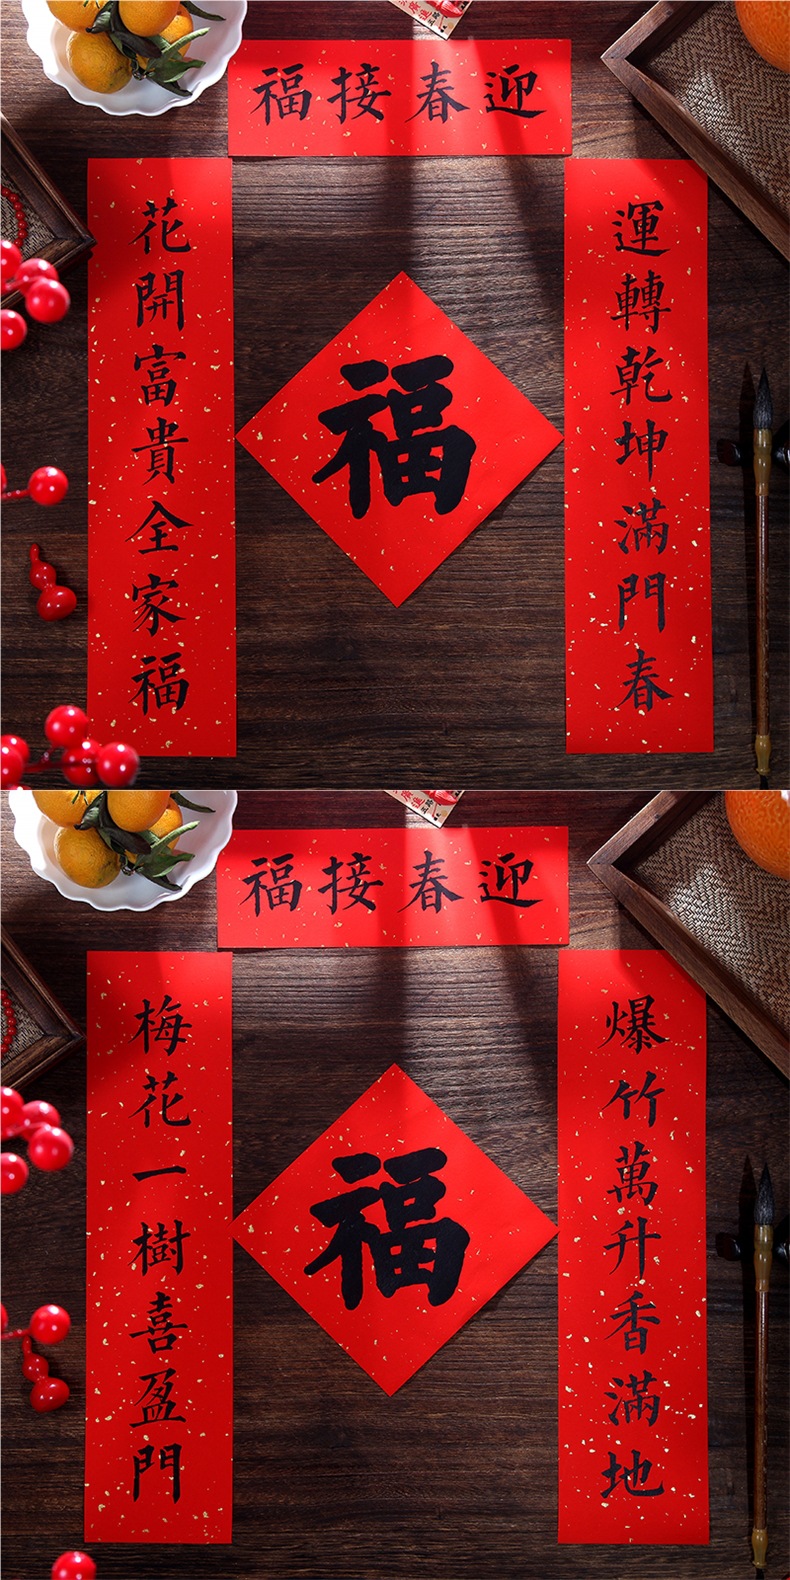 福接春迎
運轉乾坤滿門春
花開富貴全家福
福
福接春迎
爆竹萬升香滿地
梅花一樹喜盈門
福